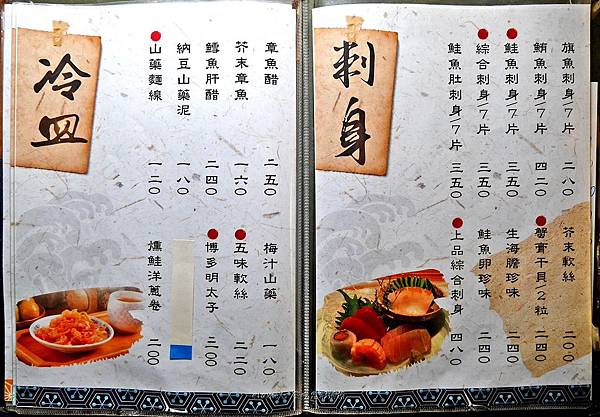 刺身
旗魚刺身/7片 二八○
鮪魚刺身/7片 四二○
鮭魚刺身/7片 三五○
綜合刺身/7片 三五○
鮭魚肚刺身/7片 三五○
芥末軟絲 二○○
蟹膏干貝/2粒 二四○
生海膽珍味 二四○
鮭魚卵珍味 二四○
上品綜合刺身 四八○
冷皿
章魚醋 二五○
芥末章魚 一六○
鱈魚肝醋 二四○
納豆山藥泥 一八○
山藥麵線 一二○
梅汁山藥 一八○
五味軟絲 二二○
博多明太子 二○○
燻鮭洋蔥卷 二○○